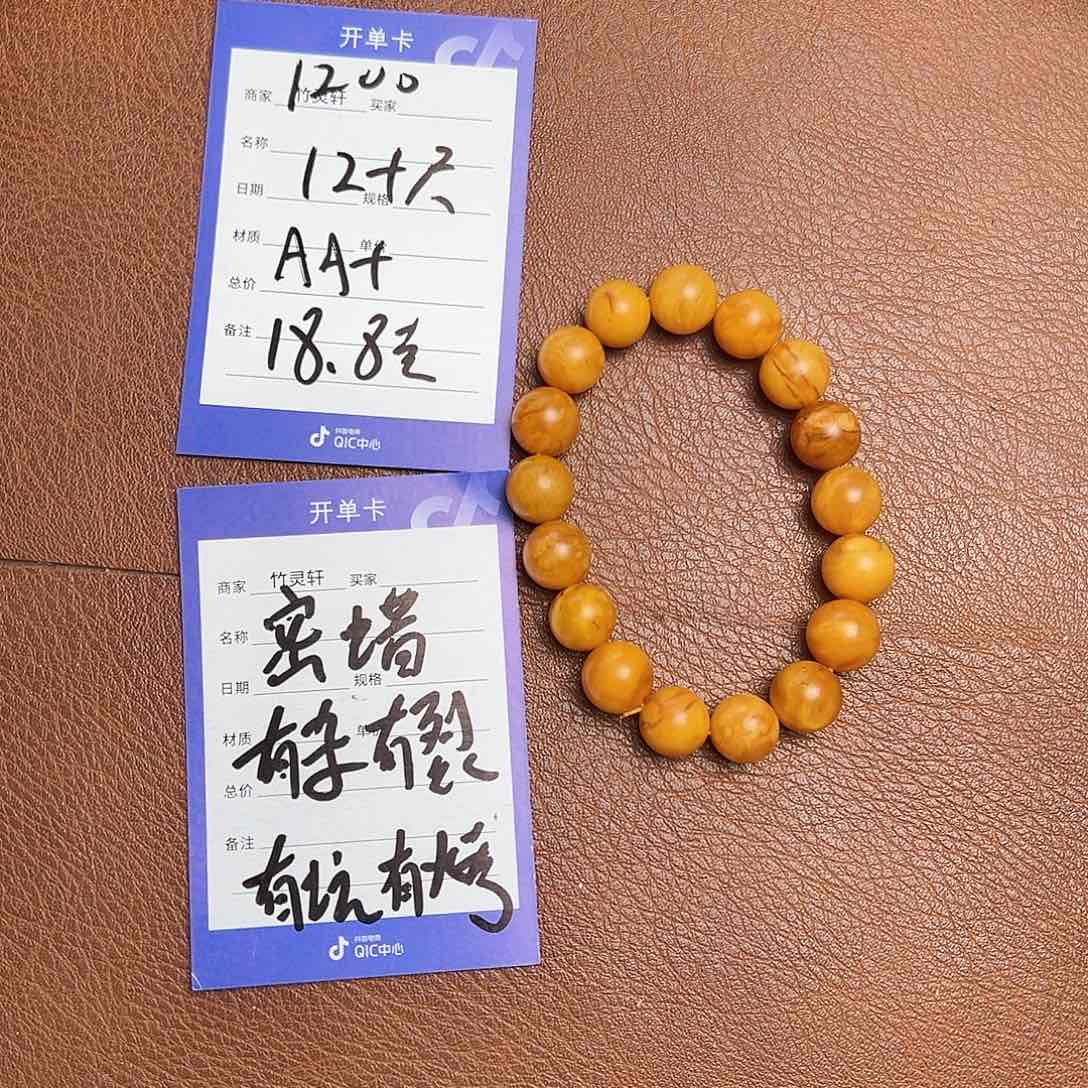 开单卡
1200
商家 竹灵轩 买家
名称
12+尺
日期 规格
AA+
材质 单价
总价
18.8克
备注
抖音电商
QIC中心
开单卡
商家 竹灵轩 买家
密蜡
名称
日期 规格
有杂有裂
材质
总价
备注
有坑有烤
抖音电商
QIC中心